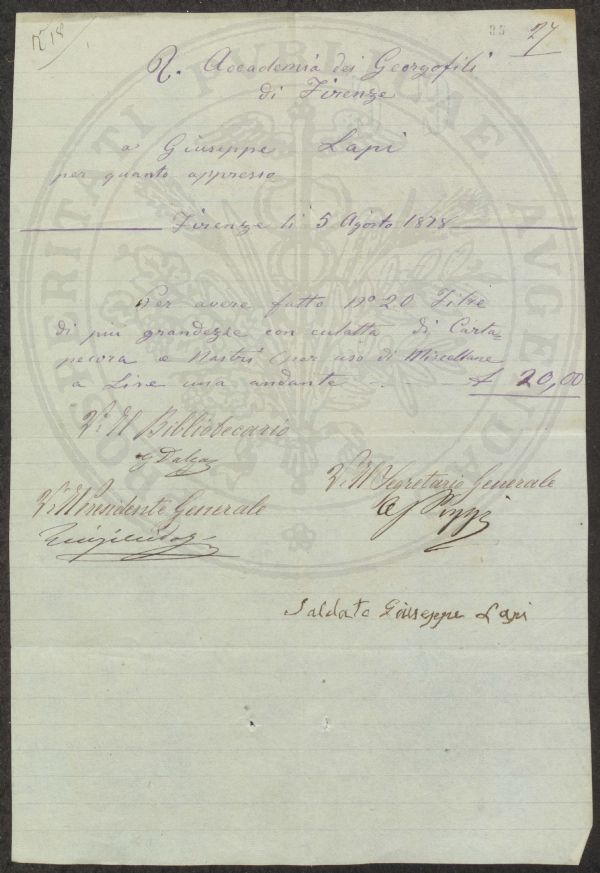 N 18
35
27
R. Accademia dei Georgofili
di Firenze
a Giuseppe Lapi
per quanto appresso
Firenze li 5 Agosto 1878
Per avere fatto No 20 Filze
di più grandezze con culatta di Carta=
pecora e Nastri (per uso di Miscellane
a Lire una andante £ 20,00
Vo Il Bibliotecario
Vo Il Segretario Generale
Vo Il Presidente Generale
Saldato Giuseppe Lapi
POSTERITATI PUBLICAE AUGENDAE